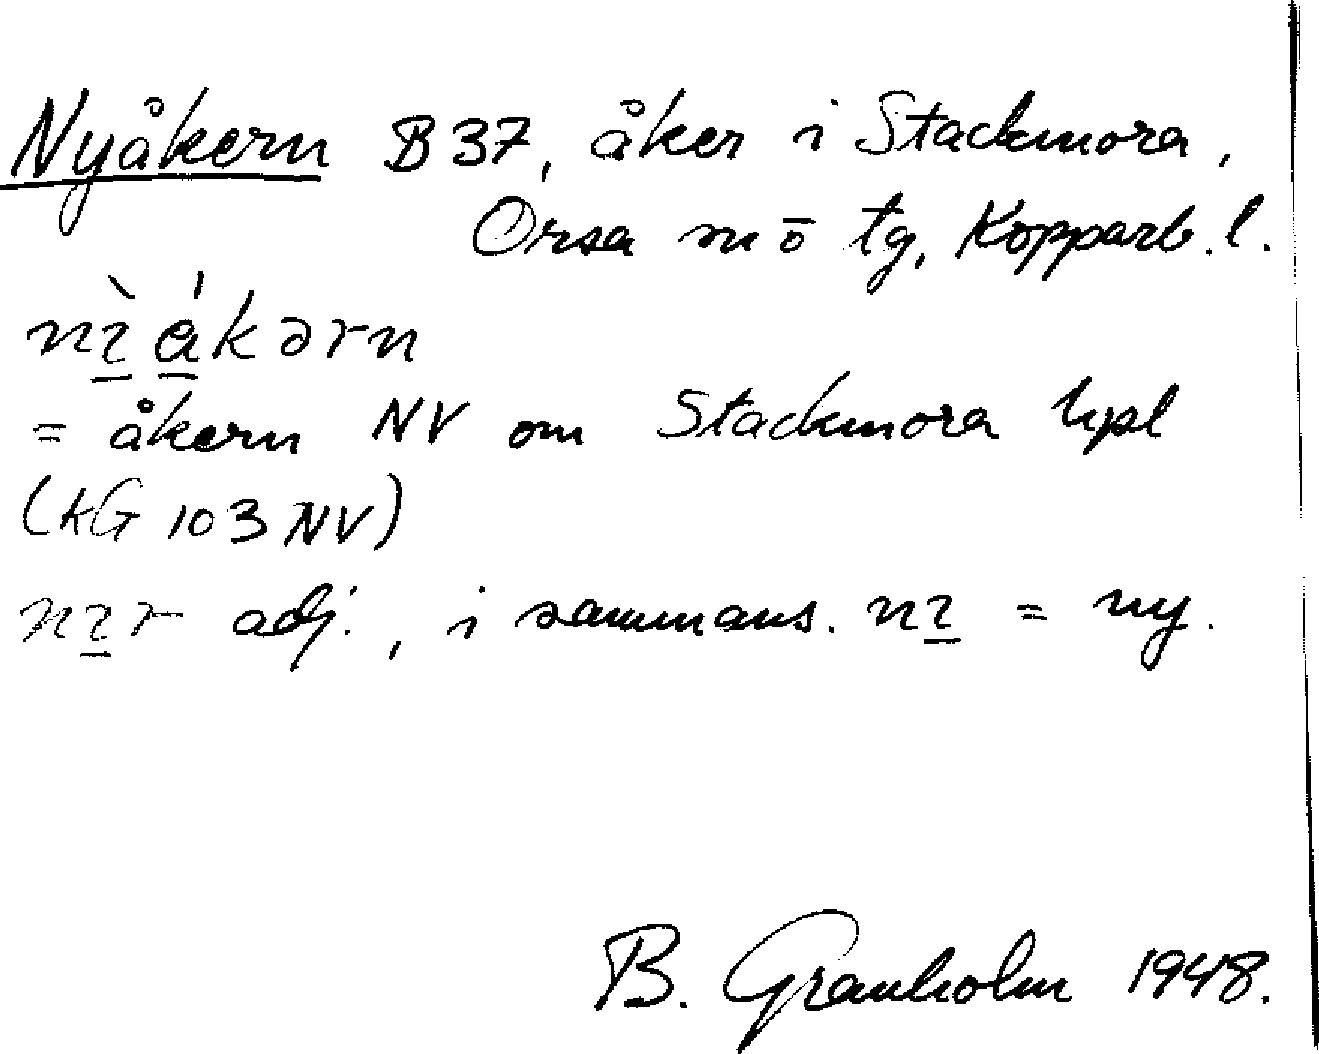 Nyåkern B 37, åker i Stackmora,
Orsa sn ö tg, Kopparb. l.
= åkern NV om Stackmora hpl
(kG 103 NV)
adj., i sammans. = ny.
B. Granholm 1948.